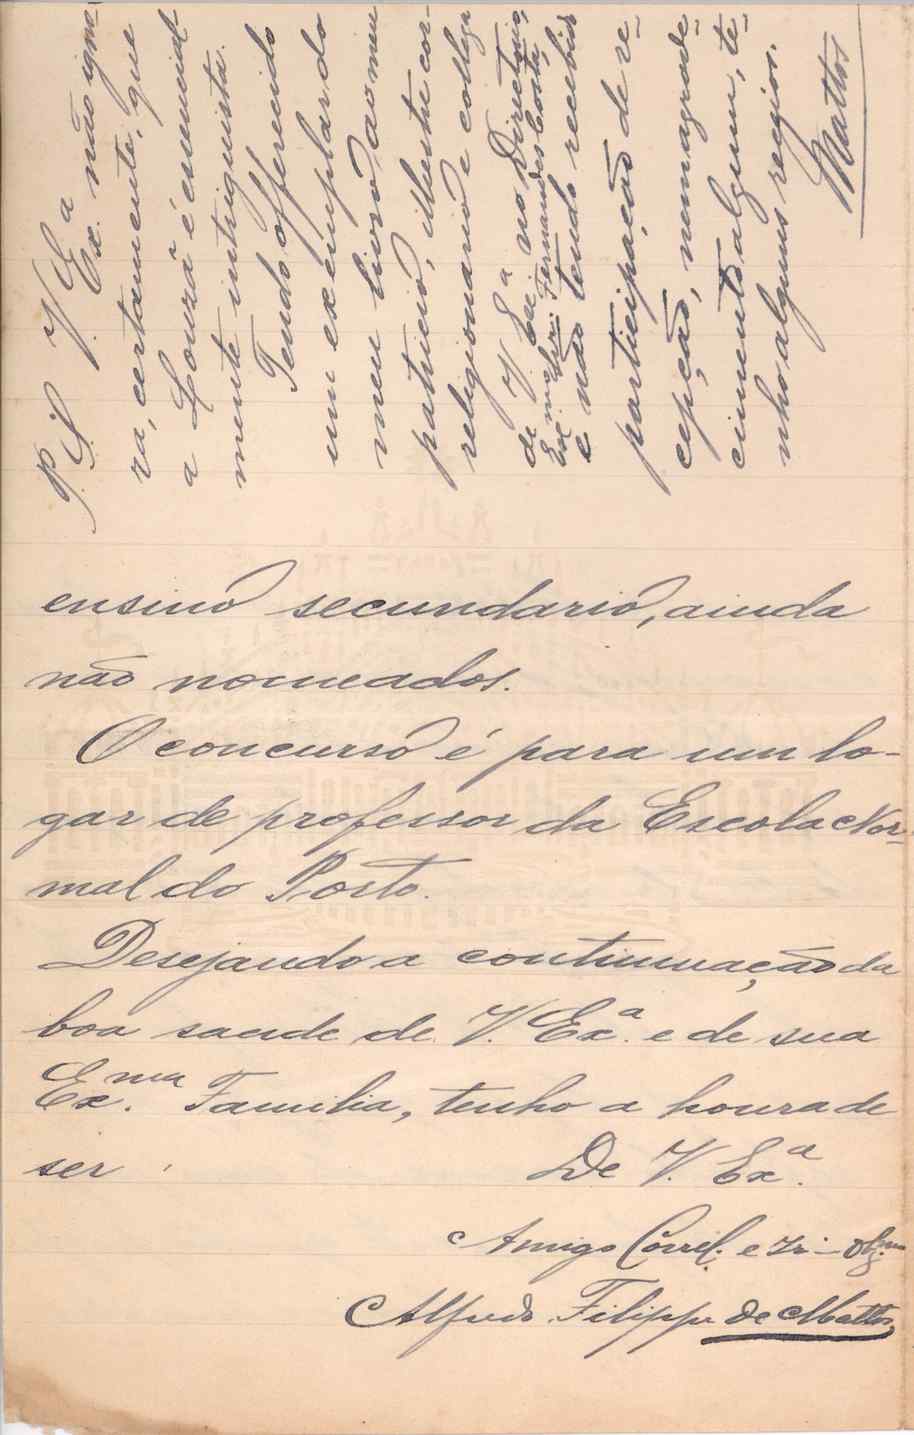 ensino secundario, ainda
não nomeados.
O concurso é para um lo-
gar de professor da Escola Nor-
mal do Porto.
Desejando a continuação da
boa saude de V. Exª. e de sua
Ex.ma Familia, tenho a honra de
ser
De V. Exª.
Amigo Correl. e Ir∴ Obg.mo
Alfredo Filippe de Mattos
P. S. V. Exª. não igno-
ra, certamente, que
a Louzã é eminente-
mente intriguista.
Tendo offerecido
um exemplar do
meu livro ao meu
patricio, illustre cor-
religionario e collega
de V. Exª. no Directorio,
Ex.mo Snr. Fernandes Costa,
e não tendo recebido
participação de re-
cepção, nem agrade-
cimento algum, te-
nho alguns
Mattos